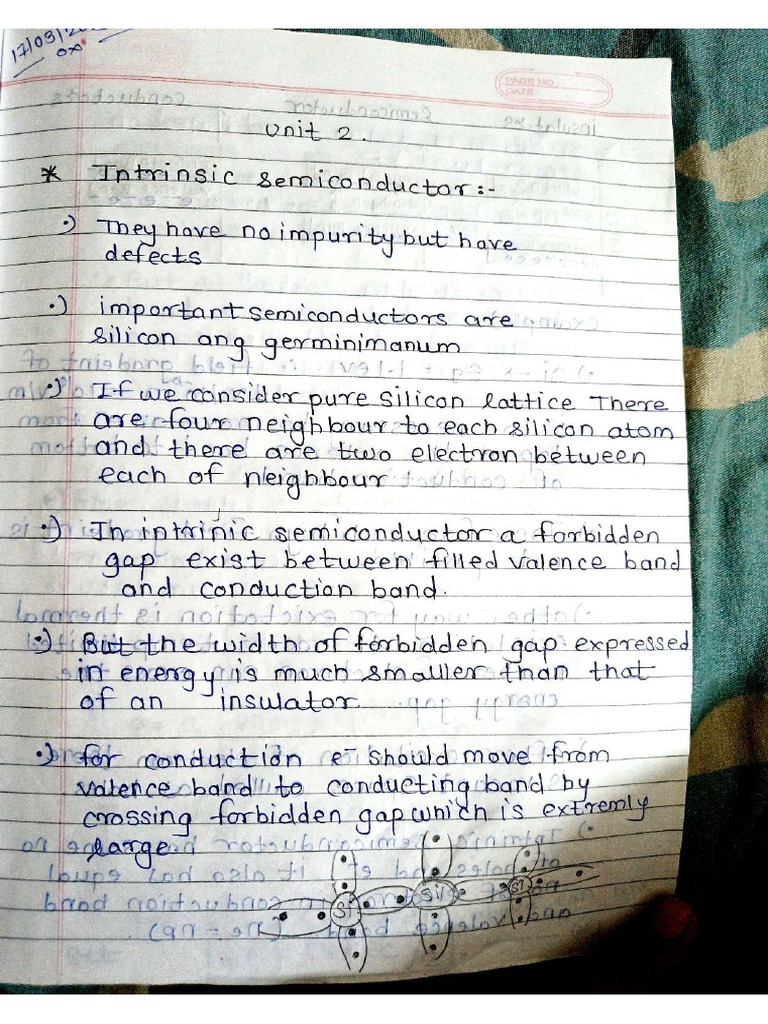 17/03/2
PAGE NO.
DATE
Unit 2.
* Intrinsic semiconductor:-
•) They have no impurity but have
defects
•) important semiconductors are
silicon ang germinimanum
•) If we consider pure silicon lattice There
are four neighbour to each silicon atom
and there are two electron between
each of neighbour
•) In intrinic semiconductor a forbidden
gap exist between filled valence band
and conduction band.
•) But the width of forbidden gap expressed
in energy is much smaller than that
of an insulator.
•) for conduction e- should move from
valence band to conducting band by
crossing forbidden gap which is extremly
large.
Si Si Si